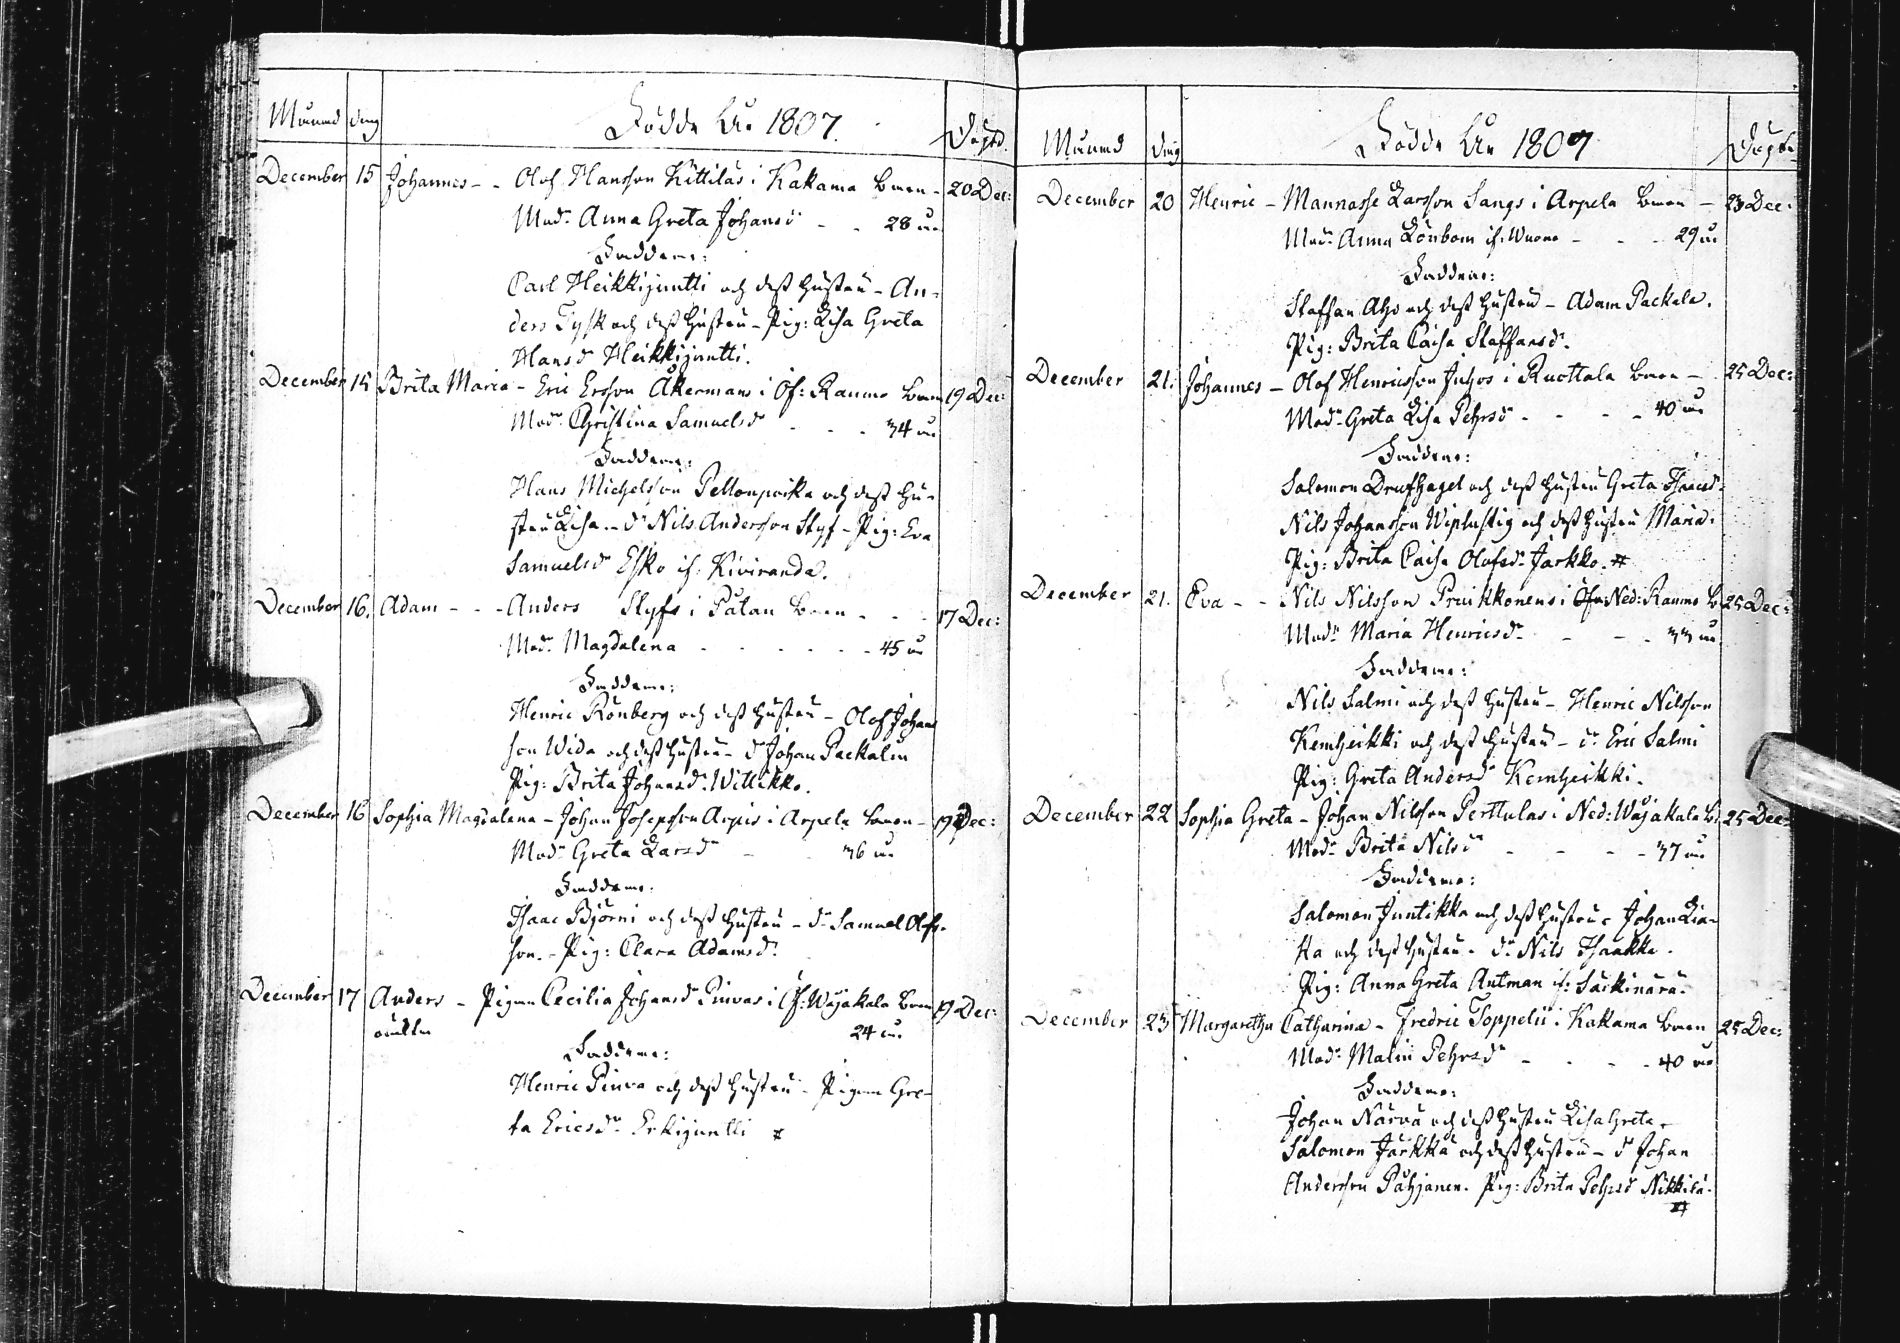 Månad dag Födde År 1807. Döpt.
December 15 Johannes - - Olof Hansson Kittiläs i Kakama barn - 20 Dec:
Mod:r Anna Greta Johansd:r - - 28 år
Faddrar:
Carl Heikkijuntti och dess hustru - An-
ders Tysk och dess hustru - Pig: Lisa Greta
Hansd:r Heikkijuntti.
December 15 Brita Maria - Eric Ersson Åkermans i Öf: Raumo barn 19 Dec:
Mod:r Christina Samuelsd:r - - - 34 år
Faddrar:
Hans Michelsson Pellonpoika och dess hu-
stru Lisa. - d:r Nils Andersson Styf - Pig: Eva
Samuelsd:r Esko if: Kiviranda.
December 16. Adam - - - Anders Styfs i Påtan barn - - - 17 Dec:
Mod:r Magdalena - - - - - - 45 år
Faddrar:
Henric Rönberg och dess hustru - Olof Johans
son Wida och dess hustru - d:r Johan Packalin
Pig: Brita Johansd:r Wittikko.
December 16 Sophia Magdalena - Johan Josephsson Arpis i Arpela barn - 19 Dec:
Mod:r Greta Larsd:r - - 36 år
Faddrar:
Isaac Björni och dess hustru - d:r Samuel Olofs-
son. - Pig: Clara Adamsd:r
December 17 Anders - Pigan Cecilia Johansd:r Pinvas i Öf: Wojakala barn 19 Dec:
oäkta 24 år.
Faddrar:
Henric Pinva och dess hustru - Pigan Gre-
ta Ericsd:r Erkijuntti #
Månad dag Födde År 1807 Döpte
December 20 Henric - Mannasse Larsson Langs i Arpela barn - 23 Dec:
Mod:r Anna Lönbom if: Wuono - - - 29 år
Faddrar:
Staffan Aho och dess hustru - Adam Packala.
Pig: Brita Caisa Staffansd:r
December 21. Johannes - Olof Henricsson Juhos i Ruottala barn - 25 Dec:
Mod:r Greta Lisa Pehrsd:r - - - - 40 år
Faddrar:
Salomon Drufhagel och dess hustru Greta Isacsd:r
Nils Johansson Wiplustig och dess hustru Maria.
Pig: Brita Caisa Olofsd:r Jarkko. #
December 21. Eva - - Nils Nilsson Pruikkonens i Ned: Raumo b 25 Dec:
Mod:r Maria Henricsd:r - - - 33 år
Faddrar:
Nils Salmi och dess hustru - Henric Nilsson
Kemheikki och dess hustru - d:r Eric Salmi
Pig: Greta Andersd:r Kemheikki.
December 22 Sophia Greta - Johan Nilsson Perttulas i Ned: Wojakala b: 25 Dec:
Mod:r Brita Nilsd:r - - - - 37 år
Faddrar:
Salomon Juntikka och dess hustru - Johan Lia-
kka och dess hustru - d:r Nils Isaakka.
Pig: Anna Greta Autman if: Säikinärä.
December 23 Margaretha Catharina - Fredric Toppelii i Kakama barn 25 Dec:
Mod:r Malin Pehrsd:r - - - - 40 år
Faddrar:
Johan Närvä och dess hustru Lisa Greta -
Salomon Järkkä och dess hustru - d:r Johan
Andersson Påhjanen. Pig: Brita Pehrsd:r Nikkilä.
#